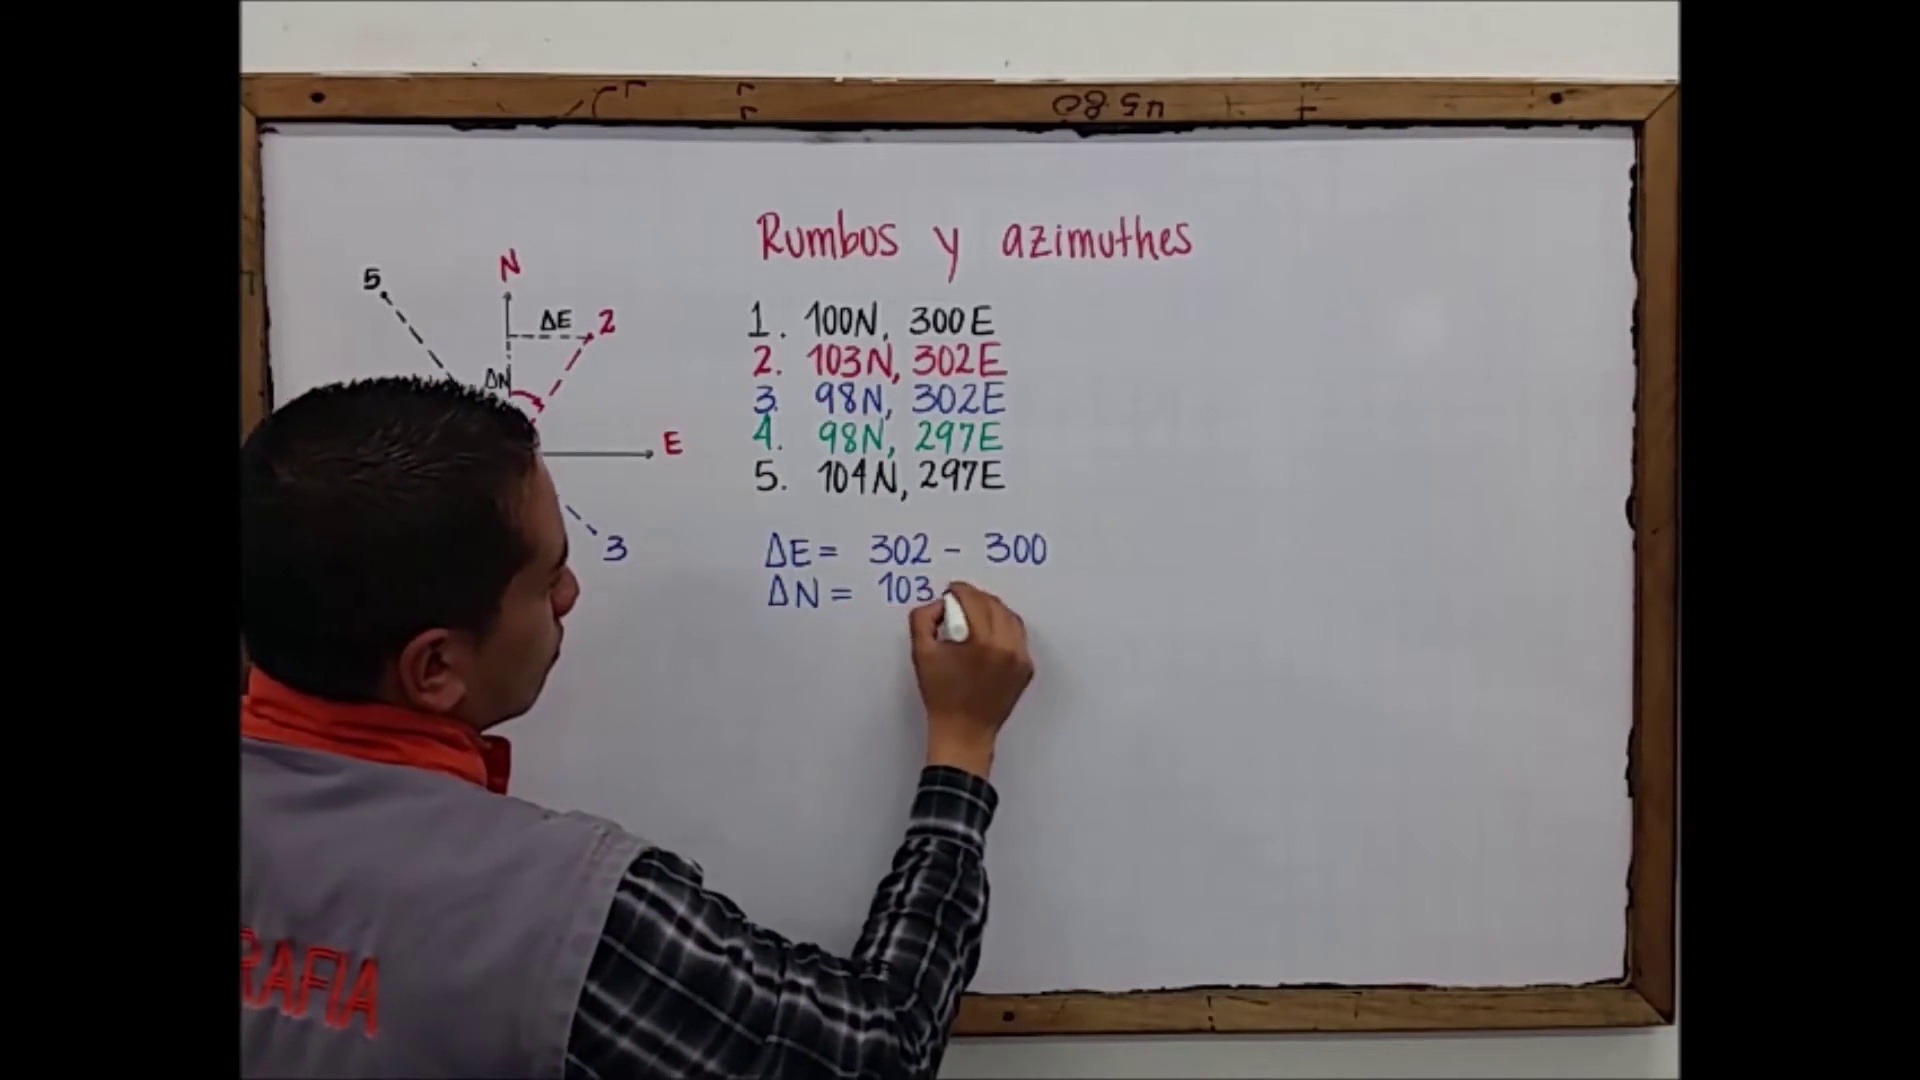 Rumbos y azimuthes
N
5
ΔE
2
ΔN
E
3
1. 100N, 300E
2. 103N, 302E
3. 98N, 302E
4. 98N, 297E
5. 104N, 297E
ΔE = 302 - 300
ΔN = 103
RAFIA